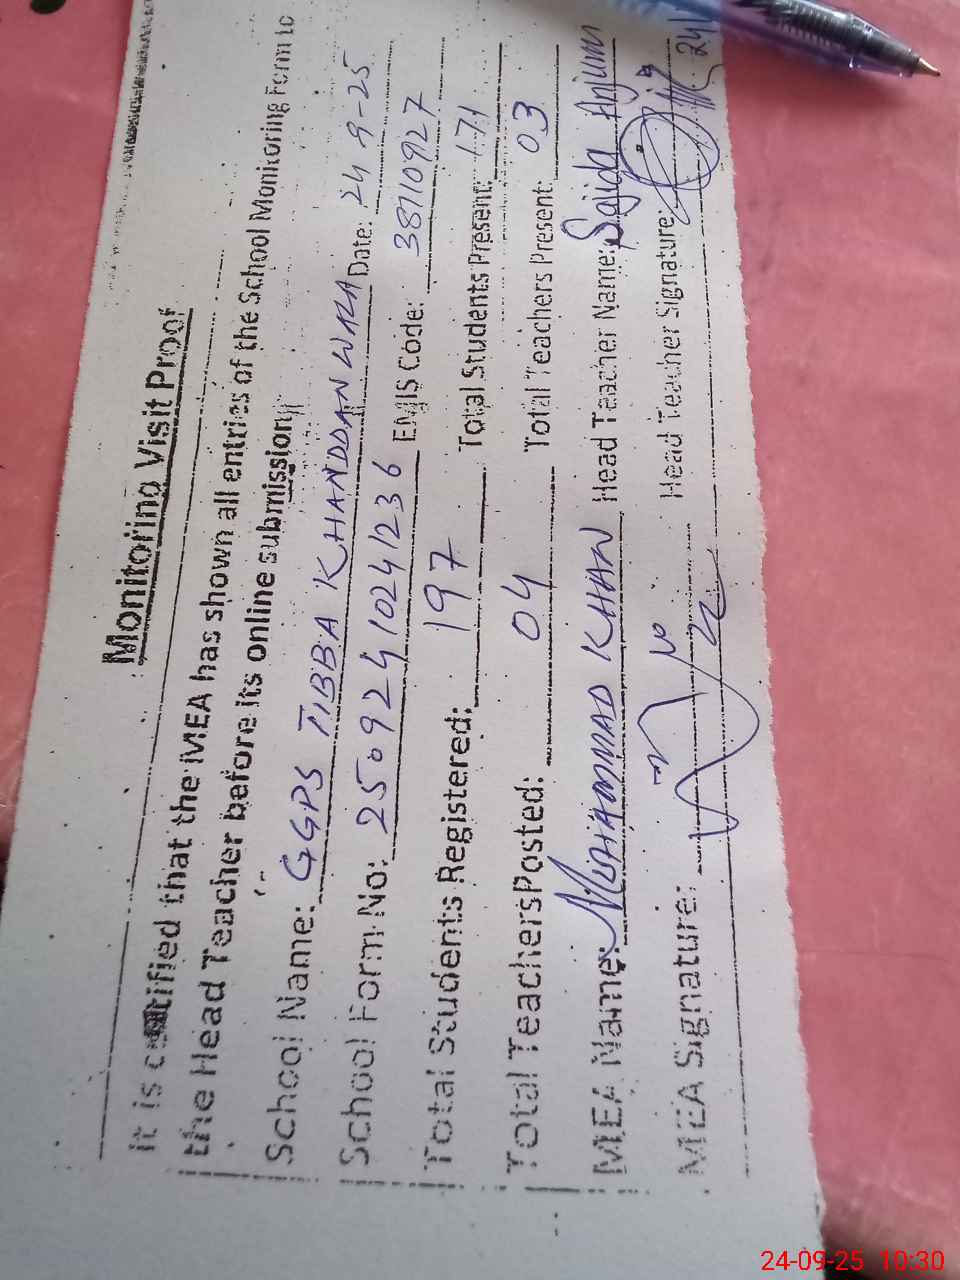 Monitoring Visit Proof
It is certified that the MEA has shown all entries of the School Monitoring Form to
the Head Teacher before its online submission.
School Name: GGPS TIBBA KHANDDAN WALA Date: 24-9-25
School Form No: 25092410241236 EMIS Code: 38110927
Total Students Registered: 197 Total Students Present: 171
Total Teachers Posted: 04 Total Teachers Present: 03
MEA Name: MUHAMMAD KHAN Head Teacher Name: Sajida Anjum
MEA Signature: Head Teacher Signature:
24-09-25 10:30